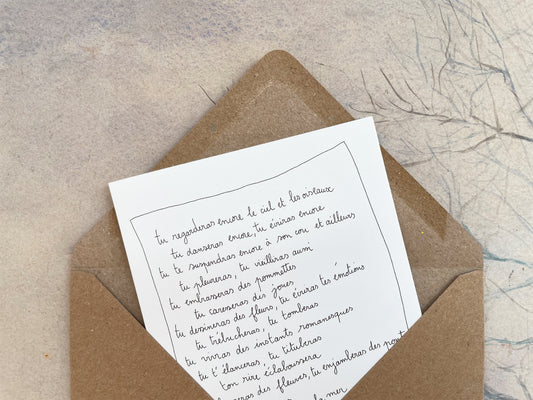 tu regarderas encore le ciel et les oiseaux
tu danseras encore, tu écriras encore
tu te suspendras encore à son cou et ailleurs
tu pleureras, tu vieilliras aussi
tu embrasseras des pommettes
tu caresseras des joues
tu dessineras des fleurs, tu écriras tes émotions
tu trébucheras, tu tomberas
tu vivras des instants romanesques
tu t'élanceras, tu tituberas
ton rire éclaboussera
des fleuves, tu enjamberas des pont
la mer